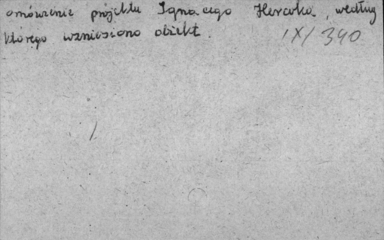 omówienie projektu Ignacego Hercoka, według
którego wzniesiono obiekt. IX/340